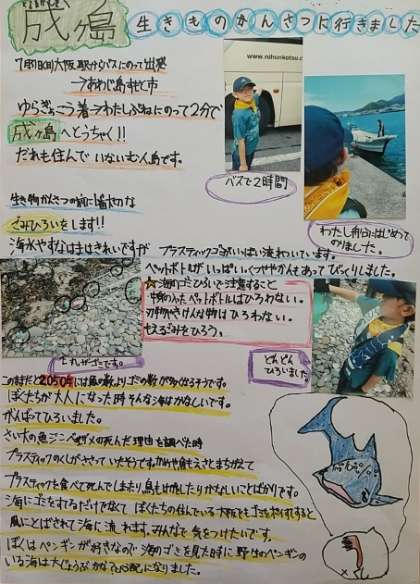 成ヶ島 生きものかんさつに行きました
7月9日(日)大阪駅からバスにのって出発
→あわじ島
→わたしぶねにのって2分で
成ヶ島へとうちゃく!!
だれも住んでいないむ人島です。
バスで2時間
わたし船にはじめて
のりました。
生き物かんさつの前に大切な
ごみひろいをします!!
海水やすなはまはきれいですが
プラスティックゴミがいっぱい流れついています。
ペットボトルがいっぱい、くつややかんもあってびっくりしました。
☆海のゴミひろいで注意すること
中身の入ったペットボトルはひろわない。
刃物やきけんな物はひろわない。
もえるごみをひろう。
これがゴミです。
どんどん
ひろいました。
このままだと2050年には魚の数よりゴミの数が多くなるそうです。
ぼくたちが大人になった時そんな海はかなしいです。
がんばってひろいました。
さい大の魚ジンベエザメの死んだ理由を調べた時
プラスティックのくしがやっていたそうです。かめや鳥もえさとまちがえて
プラスティックを食べて死んでしまったり、鳥もけがしたりかなしいことばかりです。
海にゴミをすてるだけでなくて ぼくたちの住んでいる大阪でもゴミをポイすてすると
風にとばされて海に流れます。みんなで気をつけたいです。
ぼくはペンギンが好きなので海のゴミを見た時に野生のペンギンの
いる海は大じょうぶかな?と心配になりました。